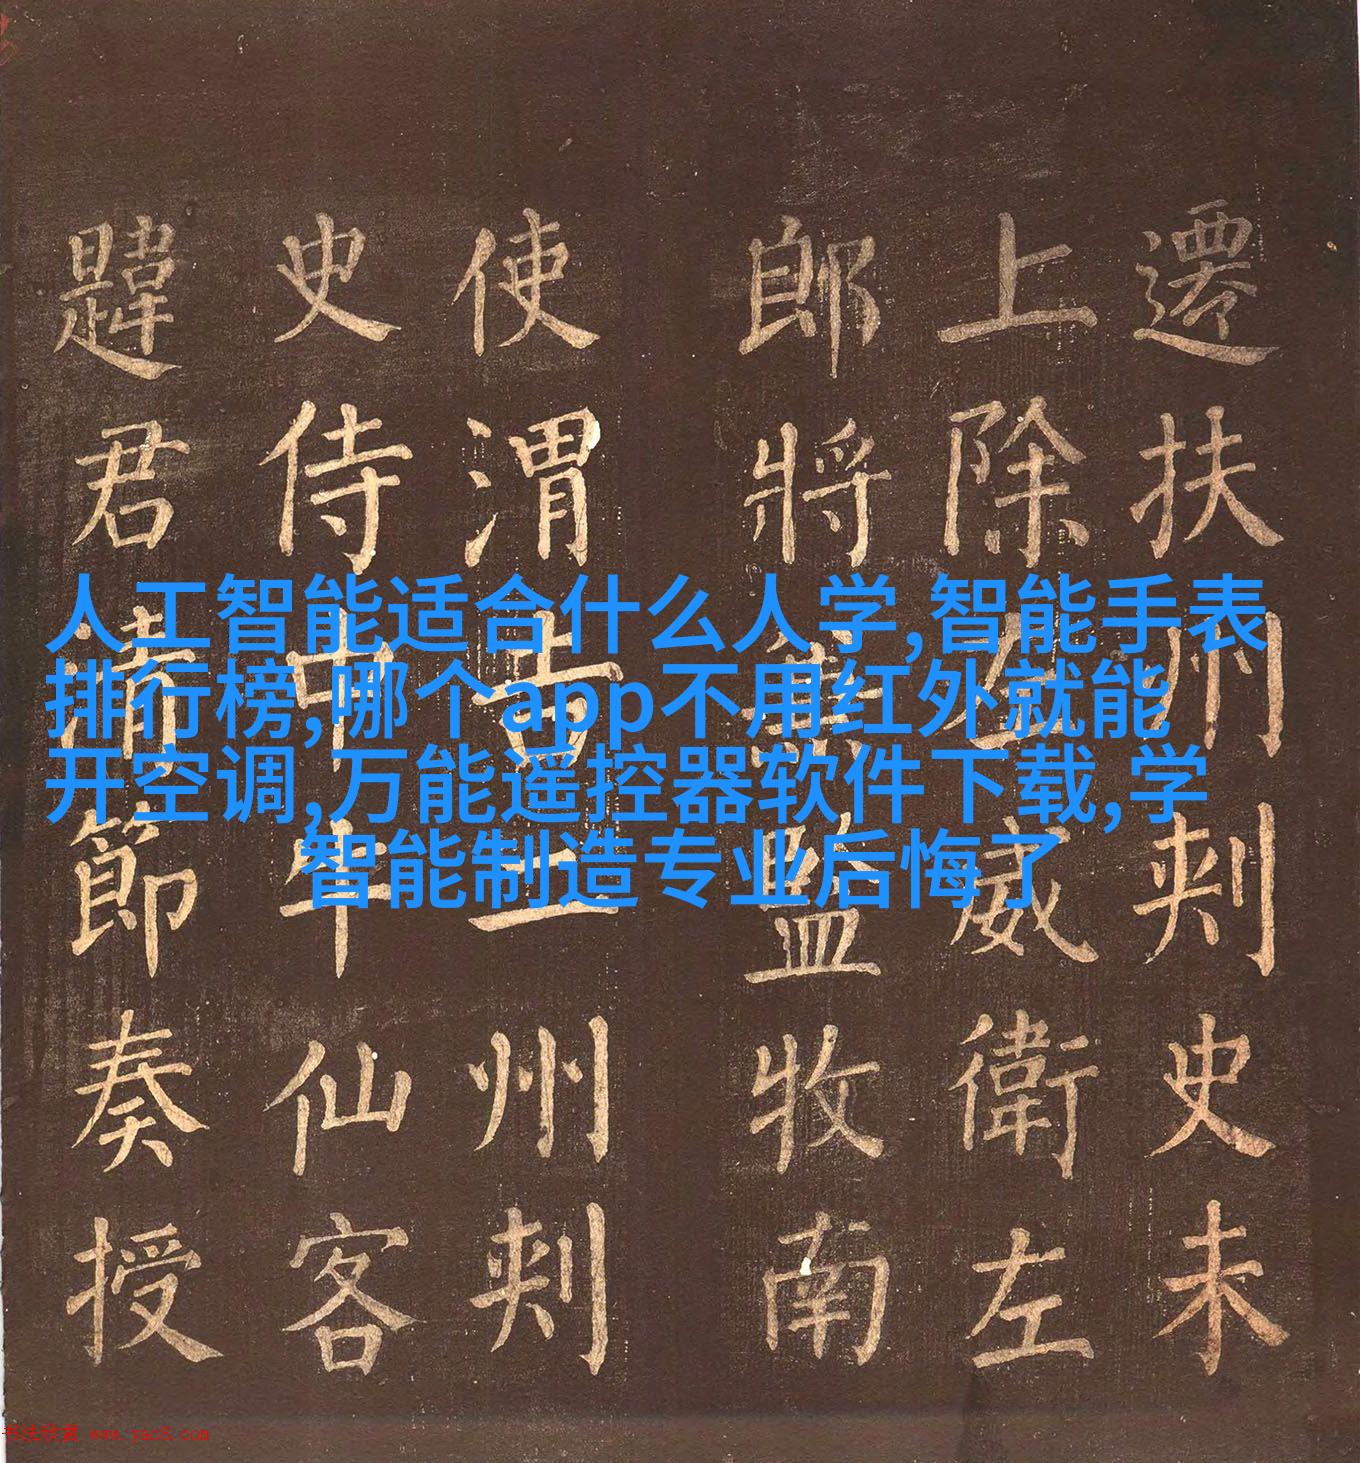 遷扶州刾史未
上除左威衛左
郎將兼監牧南
使渭吉二州刾
史侍中牛仙客
韙君清節奏授
人工智能适合什么人学,智能手表
排行榜,哪个app不用红外就能
开空调,万能遥控器软件下载,学
智能制造专业后悔了
书法欣赏 www.yac8.com